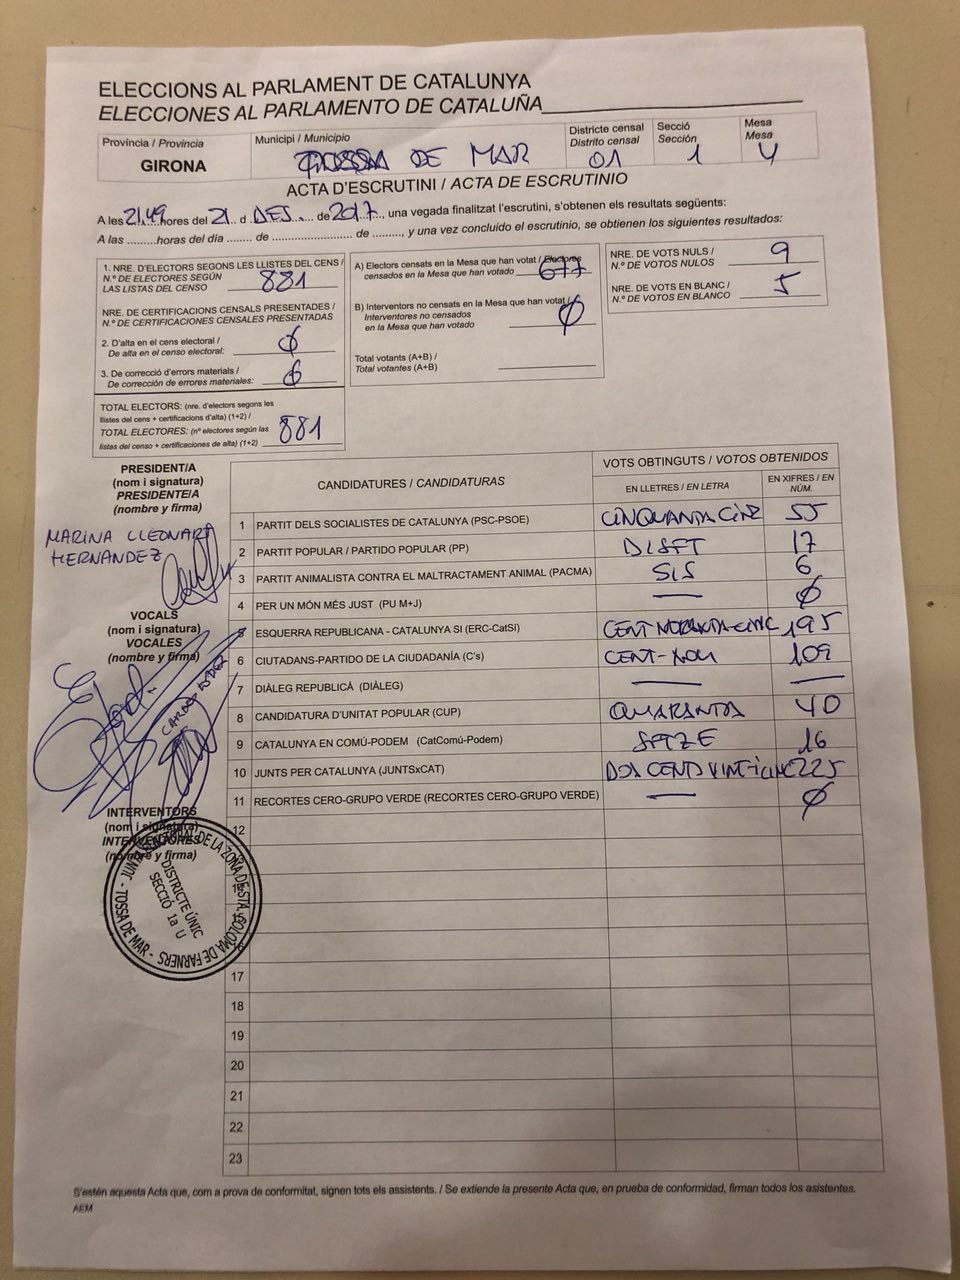 ELECCIONS AL PARLAMENT DE CATALUNYA
ELECCIONES AL PARLAMENTO DE CATALUÑA
Província / Provincia
GIRONA
Municipi / Municipio
TOSSA DE MAR
Districte censal
Distrito censal
01
Secció
Sección
1
Mesa
Mesa
U
ACTA D'ESCRUTINI / ACTA DE ESCRUTINIO
A les 21,49 hores del 21 d DES. de 2017, una vegada finalitzat l'escrutini, s'obtenen els resultats següents:
A las .........horas del día ........ de ...................... de ........., y una vez concluido el escrutinio, se obtienen los siguientes resultados:
1. NRE. D'ELECTORS SEGONS LES LLISTES DEL CENS /
N.º DE ELECTORES SEGÚN
LAS LISTAS DEL CENSO 881
NRE. DE CERTIFICACIONS CENSALS PRESENTADES /
N.º DE CERTIFICACIONES CENSALES PRESENTADAS
2. D'alta en el cens electoral /
De alta en el censo electoral: 0
3. De correcció d'errors materials /
De corrección de errores materiales: 0
TOTAL ELECTORS: (nre. d'electors segons les
llistes del cens + certificacions d'alta) (1+2) /
TOTAL ELECTORES: (nº electores según las
listas del censo + certificaciones de alta) (1+2) 881
A) Electors censats en la Mesa que han votat / Electores
censados en la Mesa que han votado 677
B) Interventors no censats en la Mesa que han votat /
Interventores no censados
en la Mesa que han votado 0
Total votants (A+B) /
Total votantes (A+B)
NRE. DE VOTS NULS /
N.º DE VOTOS NULOS 9
NRE. DE VOTS EN BLANC /
N.º DE VOTOS EN BLANCO 5
PRESIDENT/A
(nom i signatura)
PRESIDENTE/A
(nombre y firma)
MARINA LLEONART
HERNANDEZ
VOCALS
(nom i signatura)
VOCALES
(nombre y firma)
INTERVENTORS
(nom i signatura)
INTERVENTORES
(nombre y firma)
JUNTA ELECTORAL DE LA ZONA DE STA. COLOMA DE FARNERS - TOSSA DE MAR -
DISTRICTE ÚNIC
SECCIÓ 1a U
CANDIDATURES / CANDIDATURAS
VOTS OBTINGUTS / VOTOS OBTENIDOS
EN LLETRES / EN LETRA
EN XIFRES / EN NÚM.
1 PARTIT DELS SOCIALISTES DE CATALUNYA (PSC-PSOE) CINQUANTA CINC 55
2 PARTIT POPULAR / PARTIDO POPULAR (PP) DISET 17
3 PARTIT ANIMALISTA CONTRA EL MALTRACTAMENT ANIMAL (PACMA) SIS 6
4 PER UN MÓN MÉS JUST (PU M+J) — 0
5 ESQUERRA REPUBLICANA - CATALUNYA SI (ERC-CatSí) CENT NORANTA-CINC 195
6 CIUTADANS-PARTIDO DE LA CIUDADANÍA (C's) CENT-NOU 109
7 DIÀLEG REPUBLICÀ (DIÀLEG) — —
8 CANDIDATURA D'UNITAT POPULAR (CUP) QUARANTA 40
9 CATALUNYA EN COMÚ-PODEM (CatComú-Podem) SETZE 16
10 JUNTS PER CATALUNYA (JUNTSxCAT) DOS CENTS VINT-I-CINC 225
11 RECORTES CERO-GRUPO VERDE (RECORTES CERO-GRUPO VERDE) — 0
12
17
18
19
20
21
22
23
S'estén aquesta Acta que, com a prova de conformitat, signen tots els assistents. / Se extiende la presente Acta que, en prueba de conformidad, firman todos los asistentes.
AEM